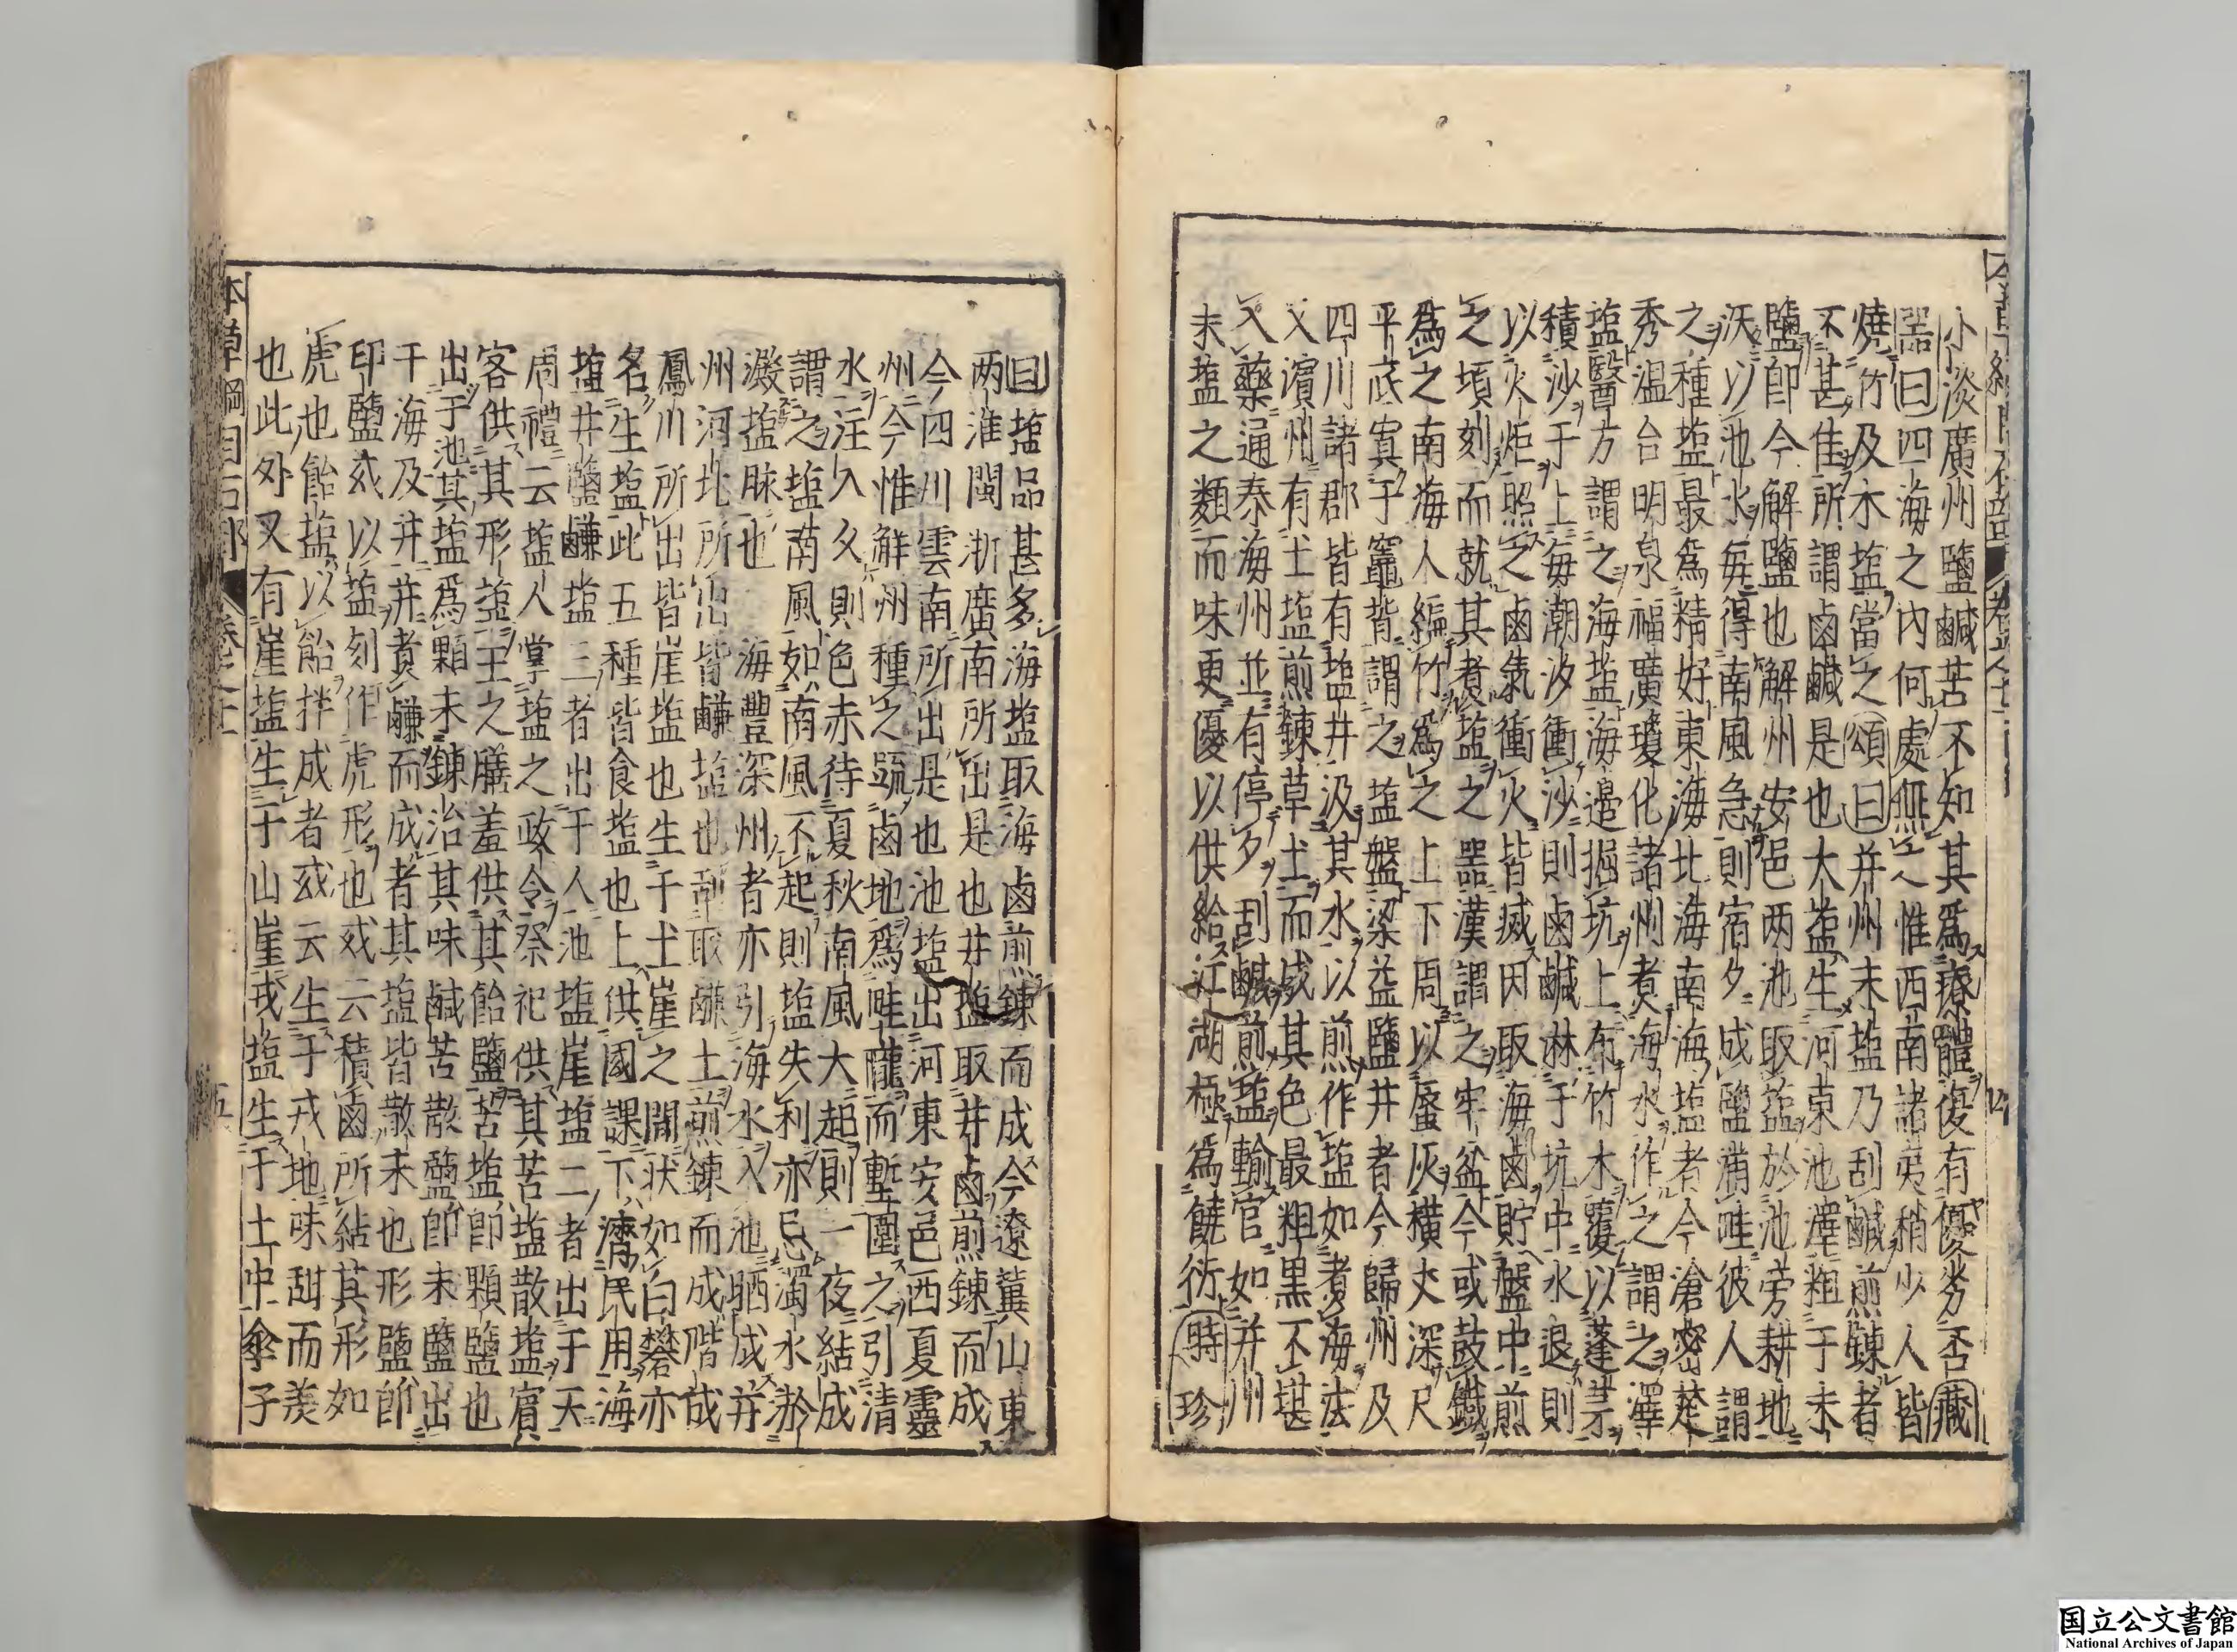 小淡廣州鹽鹹苦不知其爲療體復有優劣否藏
器曰四海之内何處無之惟西南諸夷稍少人皆
燒竹及木塩當之頌曰并州末塩乃刮鹹煎錬者
不甚佳所謂鹵鹹是也大塩生河東池澤粗于末
鹽即今解鹽也解州安邑两池取塩於池旁耕地
沃以池水毎得南風急則宿夕成鹽滿畦彼人謂
之種塩最爲精好東海北海南海塩者今滄密楚
秀温台明泉福廣瓊化諸州煮海水作之謂之澤
塩醫方謂之海塩海邉掘坑上布竹木覆以蓬茅
積沙于上毎潮汐衝沙則鹵鹹淋于坑中水退則
以火炬照之鹵氣衝火皆㓕因取海鹵貯盤中煎
之頃刻而就其煮塩之器漢謂之牢盆今或鼓鐵
爲之南海人編竹爲之上下周以蜃灰横丈深尺
平底窴于竈背謂之塩盤梁益鹽井者今歸州及
四川諸郡皆有塩井汲其水以煎作塩如煮海法
又濱州有土塩煎錬草土而成其色最粗黒不堪
入藥通泰海州並有停夕刮鹹煎塩輸官如并州
末塩之類而味更優以供給江湖極爲饒衍時珍
曰塩品甚多海塩取海鹵煎錬而成今遼冀山東
两淮閩浙廣南所出是也井塩取井鹵煎錬而成
今四川雲南所出是也池塩出河東安邑西夏靈
州今惟解州種之䟽鹵地爲畦隴而塹圍之引清
水注入久則色赤待夏秋南風大起則一夜結成
謂之塩南風如南風不起則塩失利亦忌濁水淤
澱塩脉也海豐深州者亦引海水入池晒成并
州河北所出皆鹻塩也刮取鹻土煎錬而成階成
鳳川所出皆崖塩也生于土崖之間狀如白礬亦
名生塩此五種皆食塩也上供國課下濟民用海
塩井鹽鹻塩三者出于人池塩崖塩二者出于天
周禮云塩人掌塩之政令祭祀供其苦塩散塩賓
客供其形塩王之膳羞供其飴鹽苦塩即顆鹽也
出于池其塩爲顆未錬治其味鹹苦散鹽即末鹽出
于海及井并煮鹻而成者其塩皆散末也形鹽即
印鹽或以塩刻作虎形也或云積鹵所結其形如
虎也飴塩以飴拌成者或云生于戎地味甜而美
也此外又有崖塩生于山崖戎塩生于土中傘子
本草綱目石部
国立公文書館
National Archives of Japan